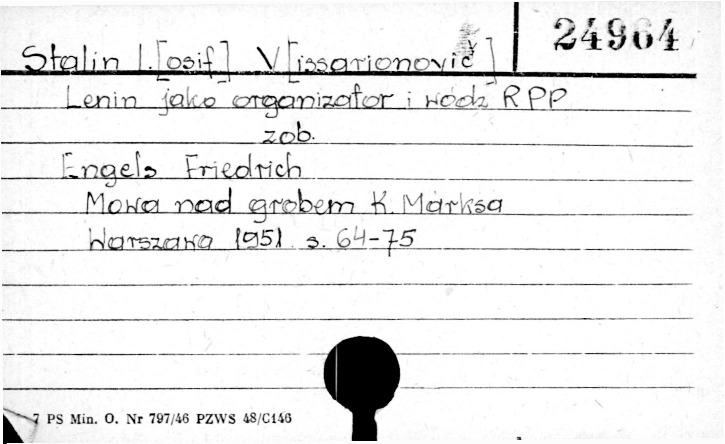 24964
Stalin I.[osif] V[issarionovič]
Lenin jako organizator i wódz RPP
zob.
Engels Friedrich
Mowa nad grobem K. Marksa
Warszawa 1951 s. 64-75
7 PS Min. O. Nr 797/46 PZWS 48/C146